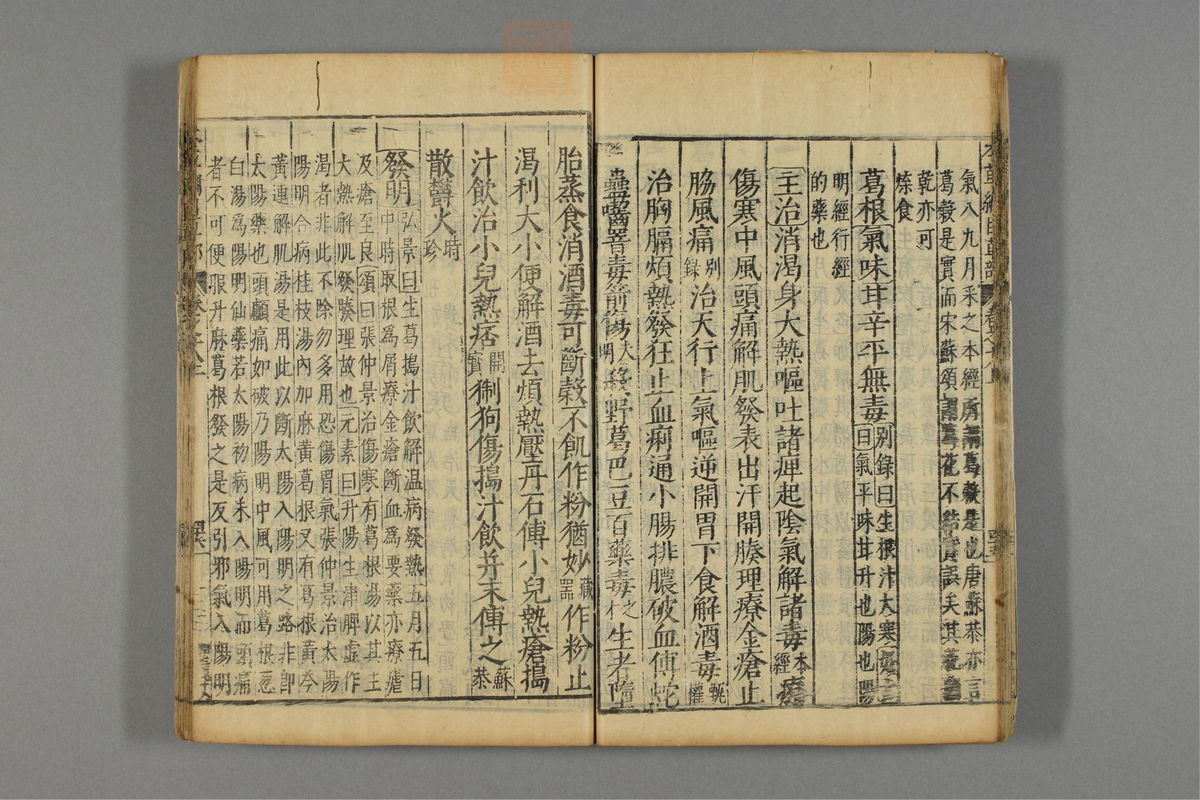 氣八九月采之本經所謂葛穀是也唐蘇恭亦言
葛穀是實而宋蘇頌謂葛花不結實誤矣其花
乾亦可
煠食
葛根氣味甘辛平無毒别錄曰生根汁大寒
曰氣平味甘升也陽也陽
明經行經
的藥也
主治消渴身大熱嘔吐諸痺起陰氣解諸毒本經療
傷寒中風頭痛解肌發表出汗開腠理療金瘡止
脇風痛别錄治天行上氣嘔逆開胃下食解酒毒甄權
治胸膈煩熱發狂止血痢通小腸排膿破血傅蛇
蟲嚙署毒箭傷大明殺野葛巴豆百藥毒之才生者墮
胎蒸食消酒毒可斷穀不飢作粉猶妙藏器作粉止
渴利大小便解酒去煩熱壓丹石傅小兒熱瘡搗
汁飲治小兒熱痞開寶猘狗傷搗汁飲并末傅之蘇恭
散鬱火時珍
發明弘景曰生葛搗汁飲解温病發熱五月五日
中時取根爲屑療金瘡斷血爲要藥亦療瘧
及瘡至良頌曰張仲景治傷寒有葛根湯以其主
大熱解肌發腠理故也元素曰升陽生津脾虛作
渴者非此不除勿多用恐傷胃氣張仲景治太陽
陽明合病桂枝湯內加麻黃葛根又有葛根黃芩
黃連解肌湯是用此以斷太陽入陽明之路非卽
太陽藥也頭顱痛如破乃陽明中風可用葛根葱
白湯爲陽明仙藥若太陽初病未入陽明而頭痛
者不可便服升麻葛根發之是反引邪氣入陽明